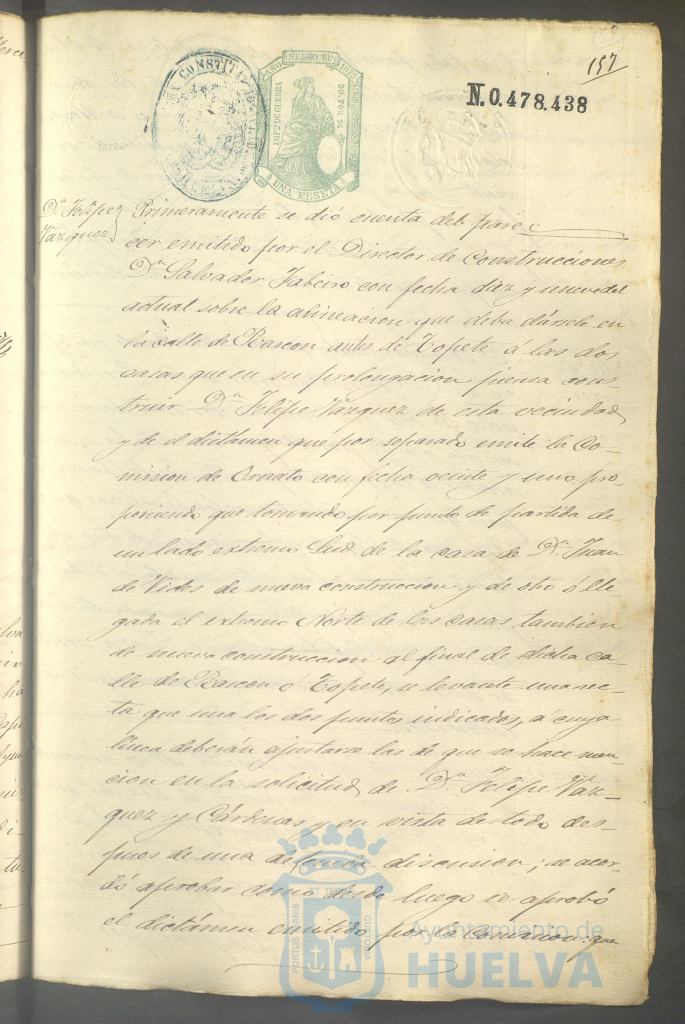 157
N.0.478.438
CONSTIT
AÑO
SELLO 10º
1876
IMPTO DE GUERRA
50 POR %
UNA PESETA
Dn Felipe
Vazquez
Primeramente se dió cuenta del pare
cer emitido por el Director de Construcciones
Dn Salvador con fecha diez y nueve del
actual sobre la alineacion que deba dársele en
la calle de Rascon antes de Topete á las dos
casas que en su prolongacion piensa cons-
truir Dn Felipe Vazquez de esta vecindad
y de el dictámen que por separado emite la Co-
mision de Ornato con fecha veinte y uno pro-
poniendo que tomando por punto de partida de
un lado extremo Sud de la casa de Dn Juan
de Vides de nueva construccion y de otro ó lle
gada el extremo Norte de las casas tambien
de nueva construccion al final de dicha ca-
lle de Rascon ó Topete, se levante una rec-
ta que una los dos puntos indicados, á cuya
línea deberán ajustarse las de que se hace men-
cion en la solicitud de Dn Felipe Váz-
quez y Cárdenas y en vista de todo des-
pues de una detenida discusion; se acor-
dó aprobar como desde luego se aprobó
el dictámen emitido por la Comision: que
PORTUS MARIS
ET TERRE
CUSTODIA
Ayuntamiento de
HUELVA